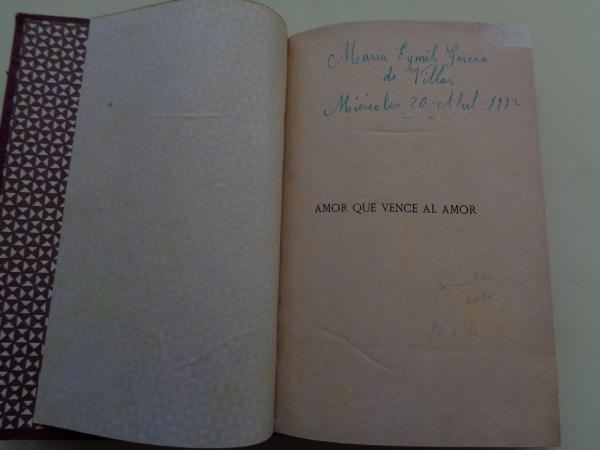 Maria Eymil Garcia
de Villar
Miércoles 20-Abril-1932
AMOR QUE VENCE AL AMOR